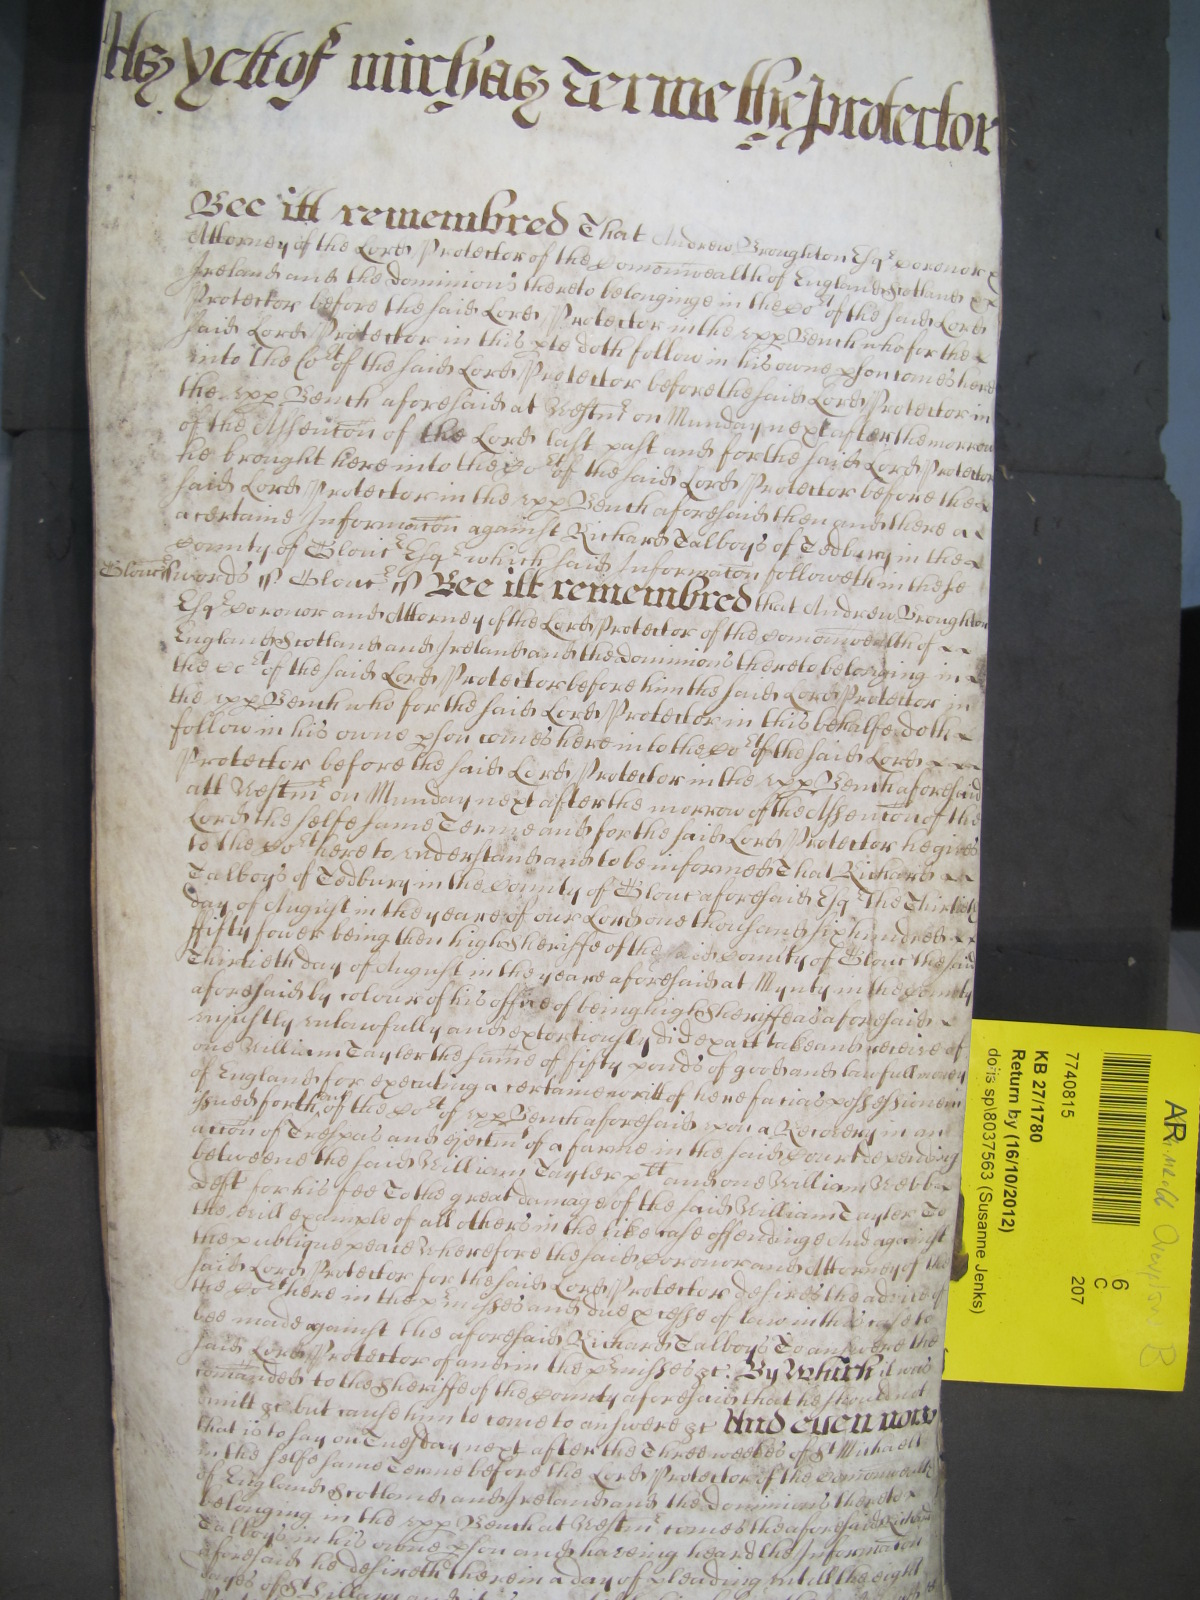 As yett of Michas Terme the Protector
Bee itt remembred That Andrew Broughton Esqr Coronor &
Attorney of the Lord Protector of the Comonwealth of England Scotland &
Ireland and the dominions thereto belonginge in the Cort of the said Lord
Protector before the said Lord Protector in the upp Bench who for the
said Lord Protector in this pte doth follow in his owne pson comes here
into the Cort of the said Lord Protector before the said Lord Protector in
the upp Bench aforesaid at Westmr on Munday next after the morrow
of the Assention of the Lord last past and for the said Lord Protector
he brought here into the Cort of the said Lord Protector before the
said Lord Protector in the upp Bench aforesaid then and there a
a certaine Informacon against Richard Talboys of Tedbury in the
County of Gloucr Esqr which said Informacon followeth in these
Gloucr words ss Gloucr ss Bee itt remembred that Andrew Broughton
Esqr Coronor and Attorney of the Lord Protector of the Comonwealth of
England Scotland and Ireland and the dominions thereto belonging in
the Cort of the said Lord Protector before him the said Lord Protector in
the upp Bench who for the said Lord Protector in this behalfe doth
follow in his owne pson comes here into the Cort of the said Lord
Protector before the said Lord Protector in the upp Bench aforesaid
att Westmr on Munday next after the morrow of the Assention of the
Lord the selfe same Terme and for the said Lord Protector he gives
to the Cort here to understand and to be informed That Richard
Talboys of Tedbury in the County of Glouc aforesaid Esqr the Thirtieth
day of August in the yeare of our Lord one thousand six hundred
fifty fower being then high Sheriffe of the said County of Glouc the said
Thirtieth day of August in the yeare aforesaid at Mynty in the County
aforesaid by colour of his office of being high Sheriffe as aforesaid
unjustly unlawfully and extortiously did exact take and receive of
one William Tayler the sume of fifty ponds of good and lawfull money
of England for executing a certaine writt of here facias possessionem
issued forth of the Cort of upp Bench aforesaid upon a Recovery in an
accon of Trespas and ejectmt of a farme in the said Court depending
betweene the said William Tayler ptt and one William Webb
Deft for his fee To the great damage of the said William Tayler To
the evill example of all others in the like case offendinge And against
the publique peace Wherefore the said Coronor and Attorney of the
said Lord Protector for the said Lord Protector desires the advice of
the Cort here in the pmisses and due pcesse of law in this case to
bee made against the aforesaid Richard Talboys To answere the
said Lord Protector of and in the pmisses &c. By Which it was
comanded to the Sheriffe of the County aforesaid that he should not
omitt &c but cause him to come to answere &c And even now
that is to say on Tuesday next after the Three weekes of St Michaell
in the selfe same Terme before the Lord Protector of the Comonwealth
of England Scotland and Ireland and the dominions thereto
belonging in the upp Bench at Westmr comes the aforesaid Richard
Talboys in his owne pson and haveing heard the Informacon
aforesaid he desireth therein a day of pleading untill the eight
dayes of St Hillary
7740815
KB 27/1780
Return by (16/10/2012)
do is sp\8037563 (Susanne Jenks)
6
C
207
AR